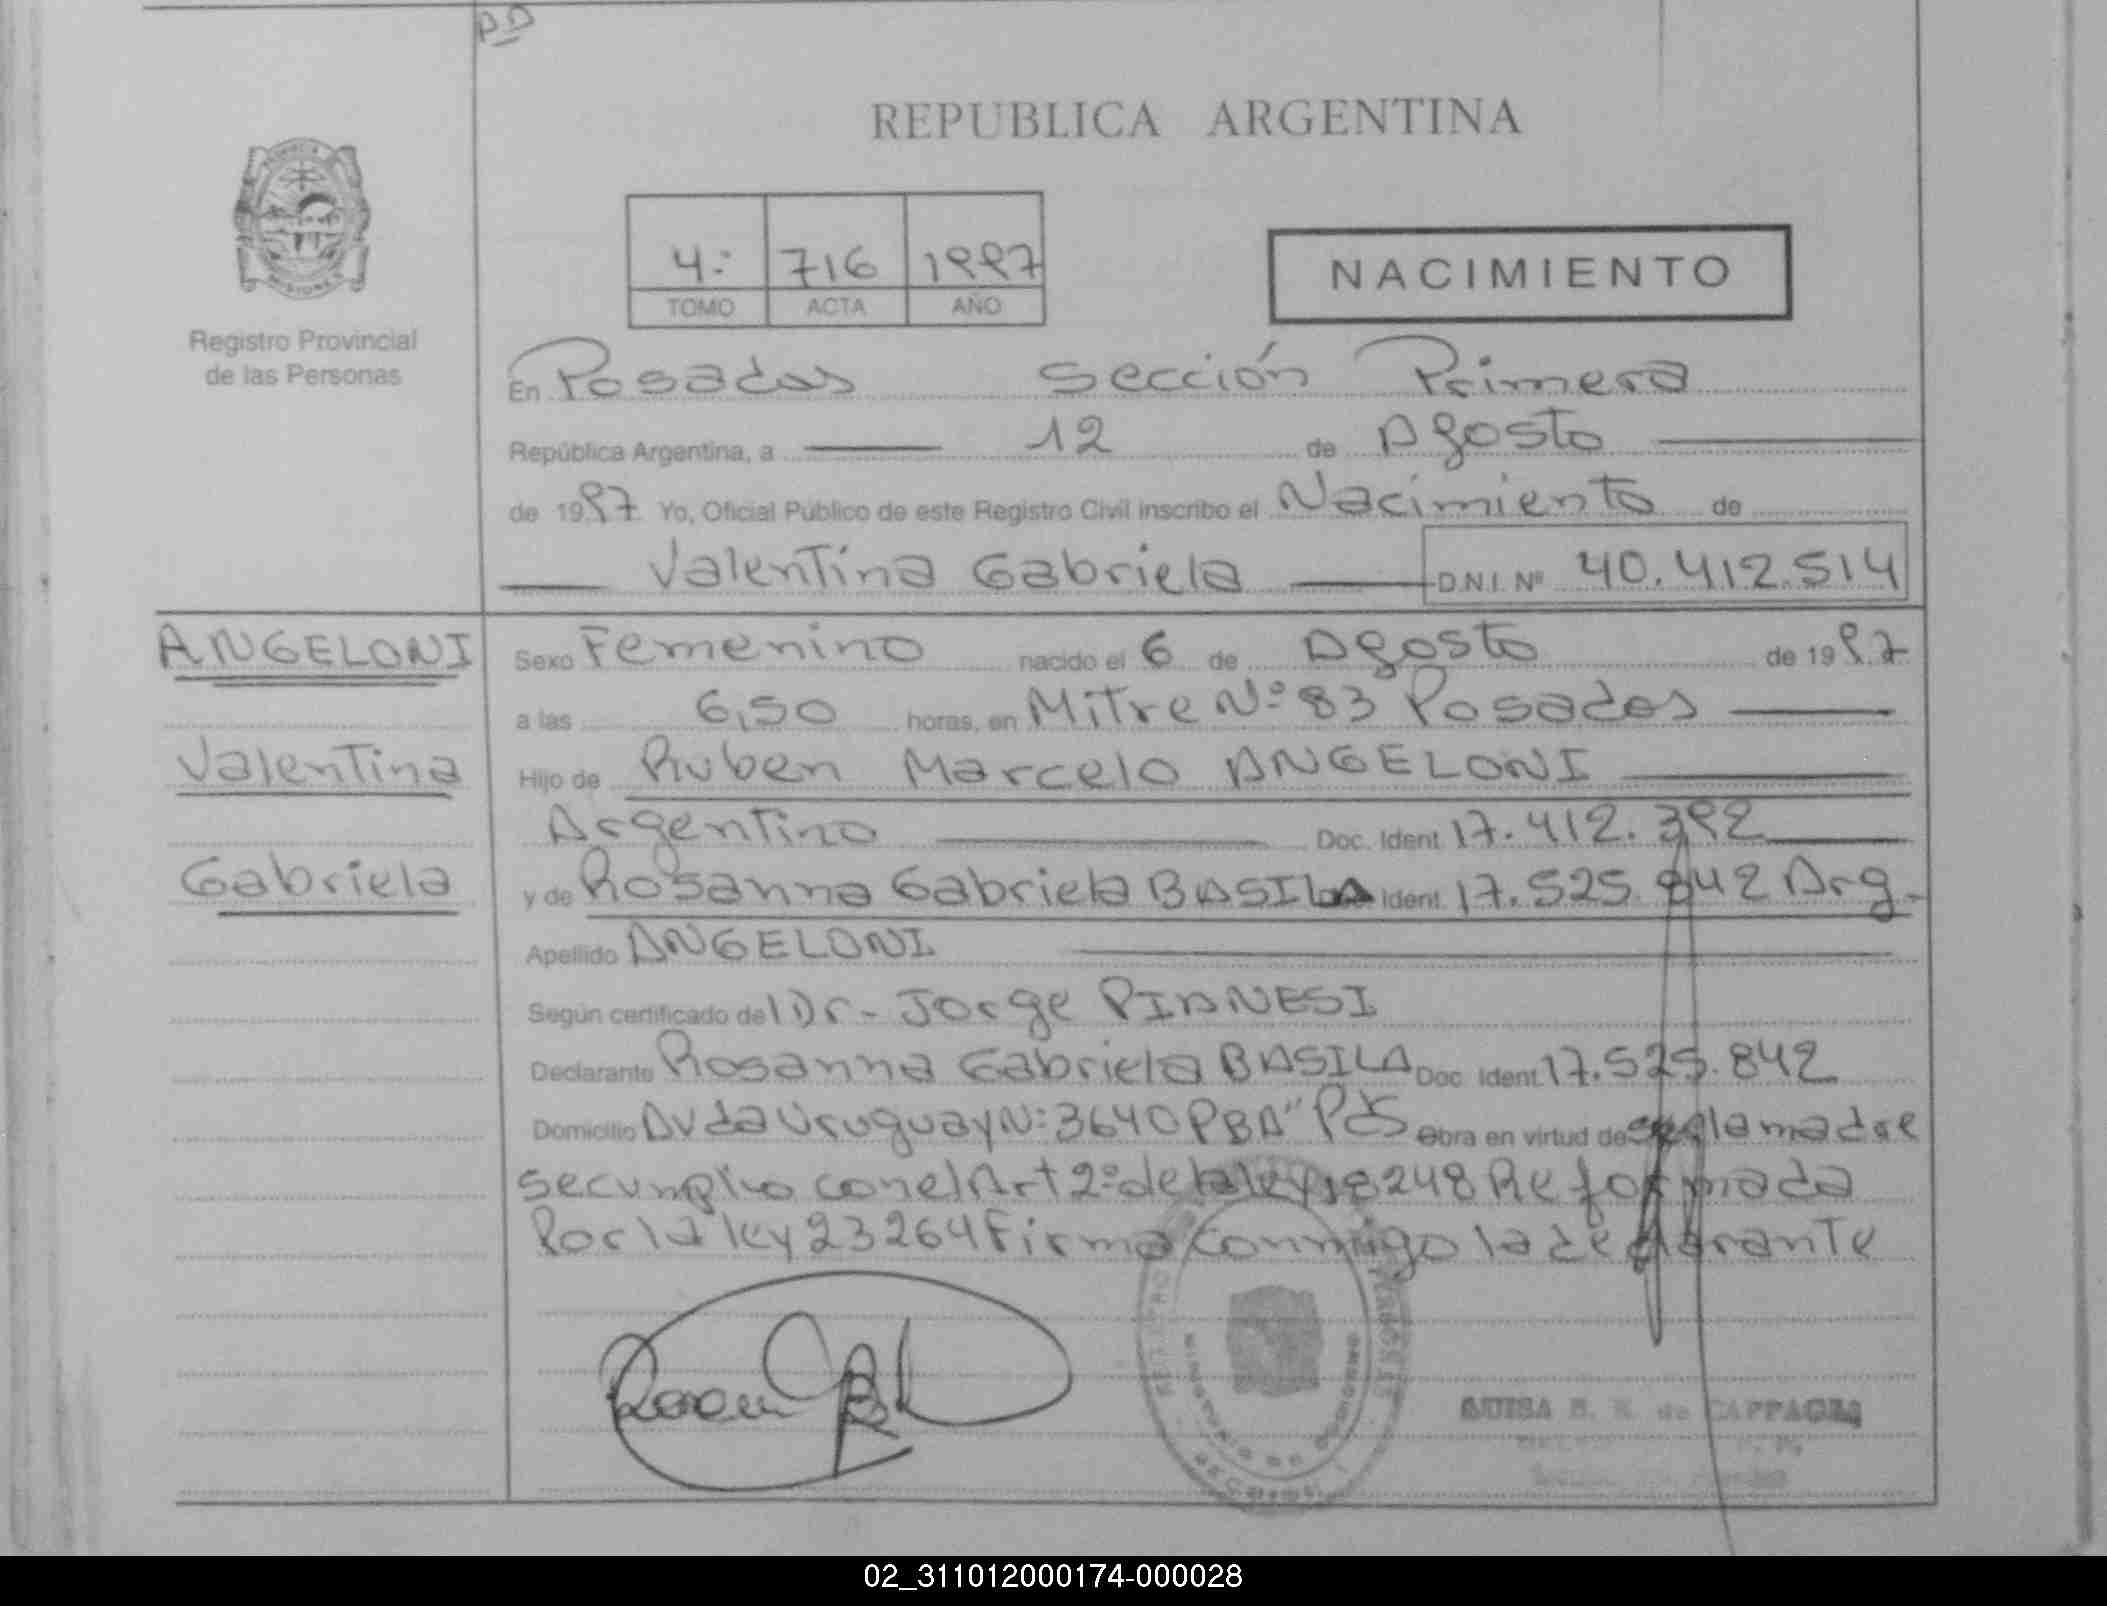 PD
REPUBLICA ARGENTINA
4º 716 1997
TOMO ACTA AÑO
NACIMIENTO
Registro Provincial
de las Personas
En Posadas Sección Primera
República Argentina, a 12 de Agosto
de 1997 Yo, Oficial Público de este Registro Civil inscribo el Nacimiento de
Valentina Gabriela D.N.I. Nº 40.412.514
ANGELONI
Valentina
Gabriela
Sexo Femenino nacido el 6 de Agosto de 1997
a las 6,50 horas, en Mitre Nº 83 Posadas
Hijo de Ruben Marcelo ANGELONI
Argentino Doc. Ident. 17.412.392
y de Rosanna Gabriela BASILA Ident. 17.525.842 Arg.
Apellido ANGELONI
Según certificado del Dr. Jorge PIANESI
Declarante Rosanna Gabriela BASILA Doc. Ident. 17.525.842
Domicilio Avda Uruguay Nº 3640 PBA" Pds Obra en virtud de ser la madre
se cumplio con el Art 2º de la ley 18248 Reformada
Por la ley 23264 Firma conmigo la declarante
de CAPPAGLI
02_311012000174-000028